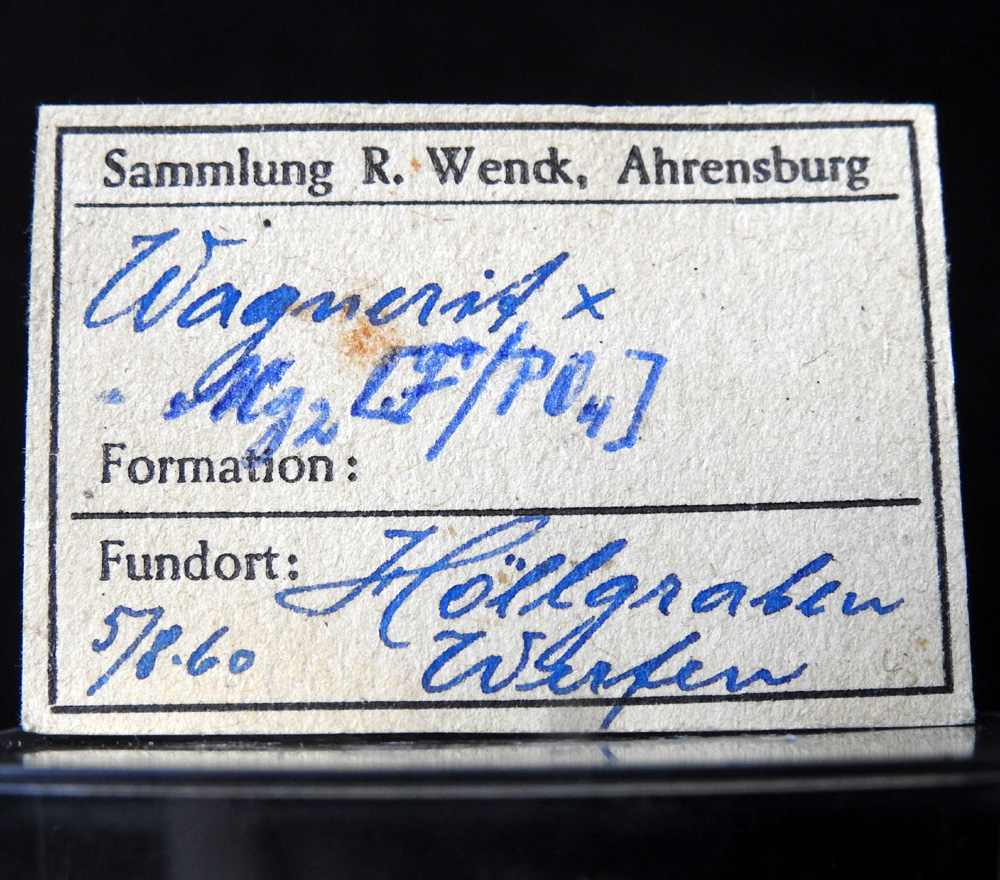 Sammlung R. Wenck, Ahrensburg
Wagnerit x
Mg₂[F/PO₄]
Formation:
Fundort: Höllgraben
5/8.60 Werfen